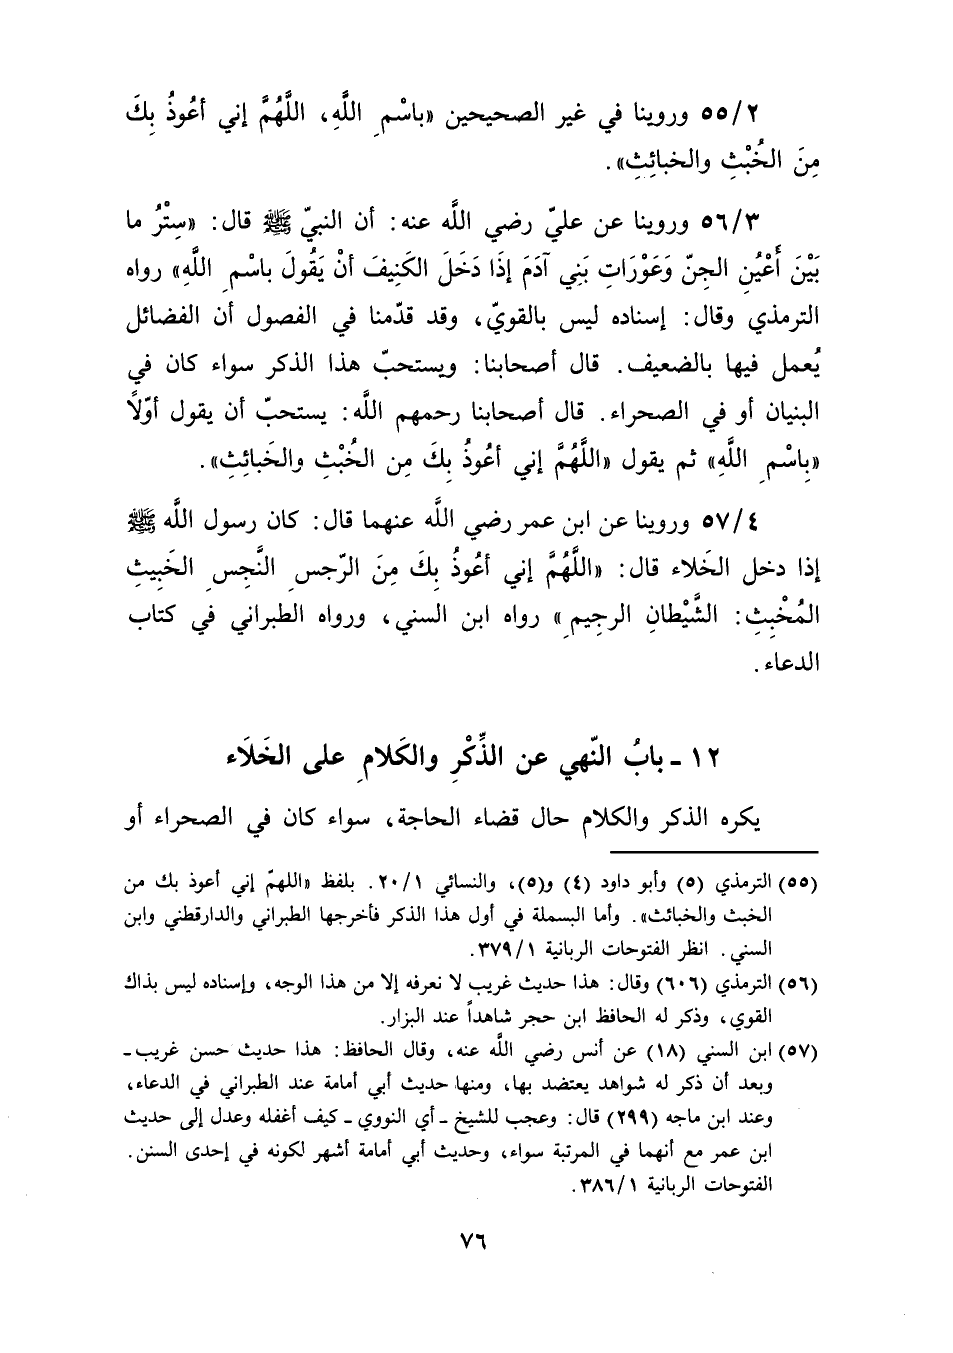 ٥٥/٢ وروينا في غير الصحيحين «باسْمِ اللَّهِ، اللَّهُمَّ إني أعُوذُ بِكَ
مِنَ الخُبْثِ والخبائِثِ».
٥٦/٣ وروينا عن عليّ رضي اللَّه عنه: أن النبيّ ﷺ قال: «سِتْرُ ما
بَيْنَ أَعْيُنِ الجِنّ وَعَوْرَاتِ بَنِي آدَمَ إذَا دَخَلَ الكَنِيفَ أنْ يَقُولَ باسْمِ اللَّهِ» رواه
الترمذي وقال: إسناده ليس بالقويّ، وقد قدّمنا في الفصول أن الفضائل
يُعمل فيها بالضعيف. قال أصحابنا: ويستحبّ هذا الذكر سواء كان في
البنيان أو في الصحراء. قال أصحابنا رحمهم اللَّه: يستحبّ أن يقول أوّلاً
«بِاسْمِ اللَّهِ» ثم يقول «اللَّهُمَّ إني أعُوذُ بِكَ مِن الخُبْثِ والخَبائِثِ».
٥٧/٤ وروينا عن ابن عمر رضي اللَّه عنهما قال: كان رسول اللَّه ﷺ
إذا دخل الخَلاء قال: «اللَّهُمَّ إني أعُوذُ بِكَ مِنَ الرّجسِ النَّجِسِ الخَبِيثِ
المُخْبِثِ: الشَّيْطانِ الرجِيمِ» رواه ابن السني، ورواه الطبراني في كتاب
الدعاء.
١٢ ـ بابُ النّهي عن الذِّكْرِ والكَلامِ على الخَلَاء
يكره الذكر والكلام حال قضاء الحاجة، سواء كان في الصحراء أو
(٥٥) الترمذي (٥) وأبو داود (٤) و(٥)، والنسائي ٢٠/١. بلفظ «اللهمّ إني أعوذ بك من
الخبث والخبائث». وأما البسملة في أول هذا الذكر فأخرجها الطبراني والدارقطني وابن
السني. انظر الفتوحات الربانية ٣٧٩/١.
(٥٦) الترمذي (٦٠٦) وقال: هذا حديث غريب لا نعرفه إلا من هذا الوجه، وإسناده ليس بذاك
القوي، وذكر له الحافظ ابن حجر شاهداً عند البزار.
(٥٧) ابن السني (١٨) عن أنس رضي اللَّه عنه، وقال الحافظ: هذا حديث حسن غريب ـ
وبعد أن ذكر له شواهد يعتضد بها، ومنها حديث أبي أمامة عند الطبراني في الدعاء،
وعند ابن ماجه (٢٩٩) قال: وعجب للشيخ ـ أي النووي ـ كيف أغفله وعدل إلى حديث
ابن عمر مع أنهما في المرتبة سواء، وحديث أبي أمامة أشهر لكونه في إحدى السنن.
الفتوحات الربانية ٣٨٦/١.
٧٦